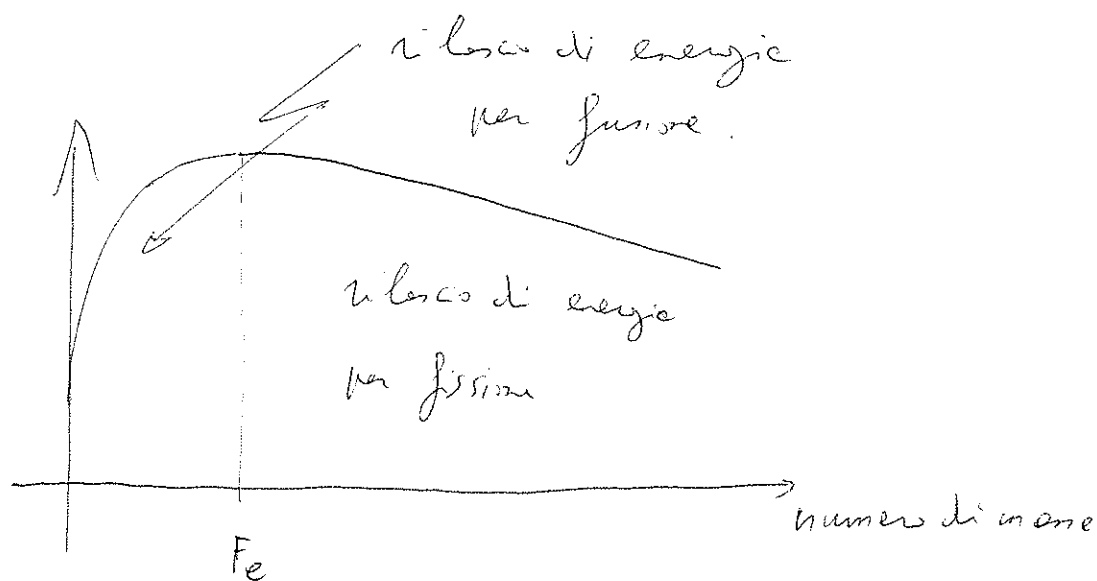 rilascio di energia
per fusione.
rilascio di energia
per fissione
numero di massa
Fe